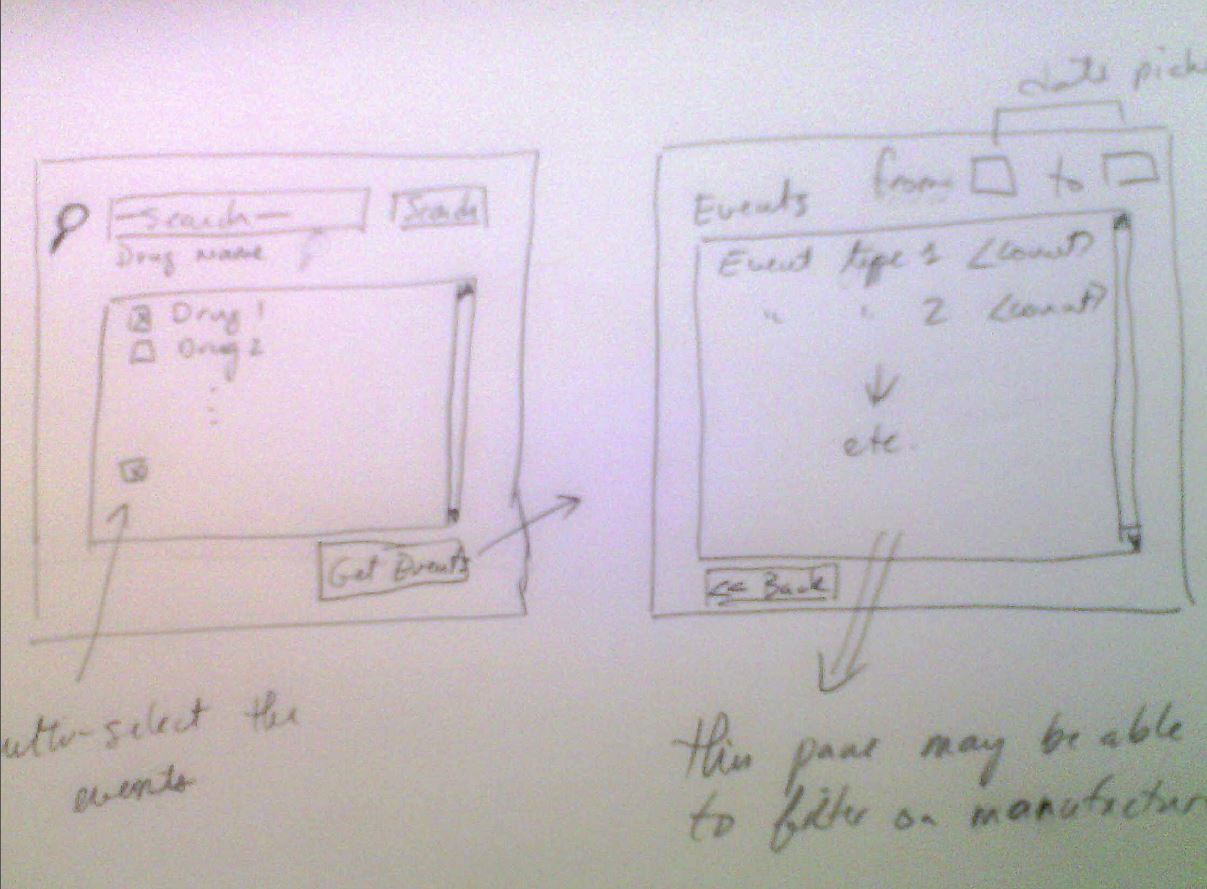 date pick
—Search—
Search
Drug name
Drug 1
Drug 2
Get Events
multi-select the
events
Events from to
Event type 1 <count>
" " 2 <count>
etc.
<< Back
this pane may be able
to filter on manufactur